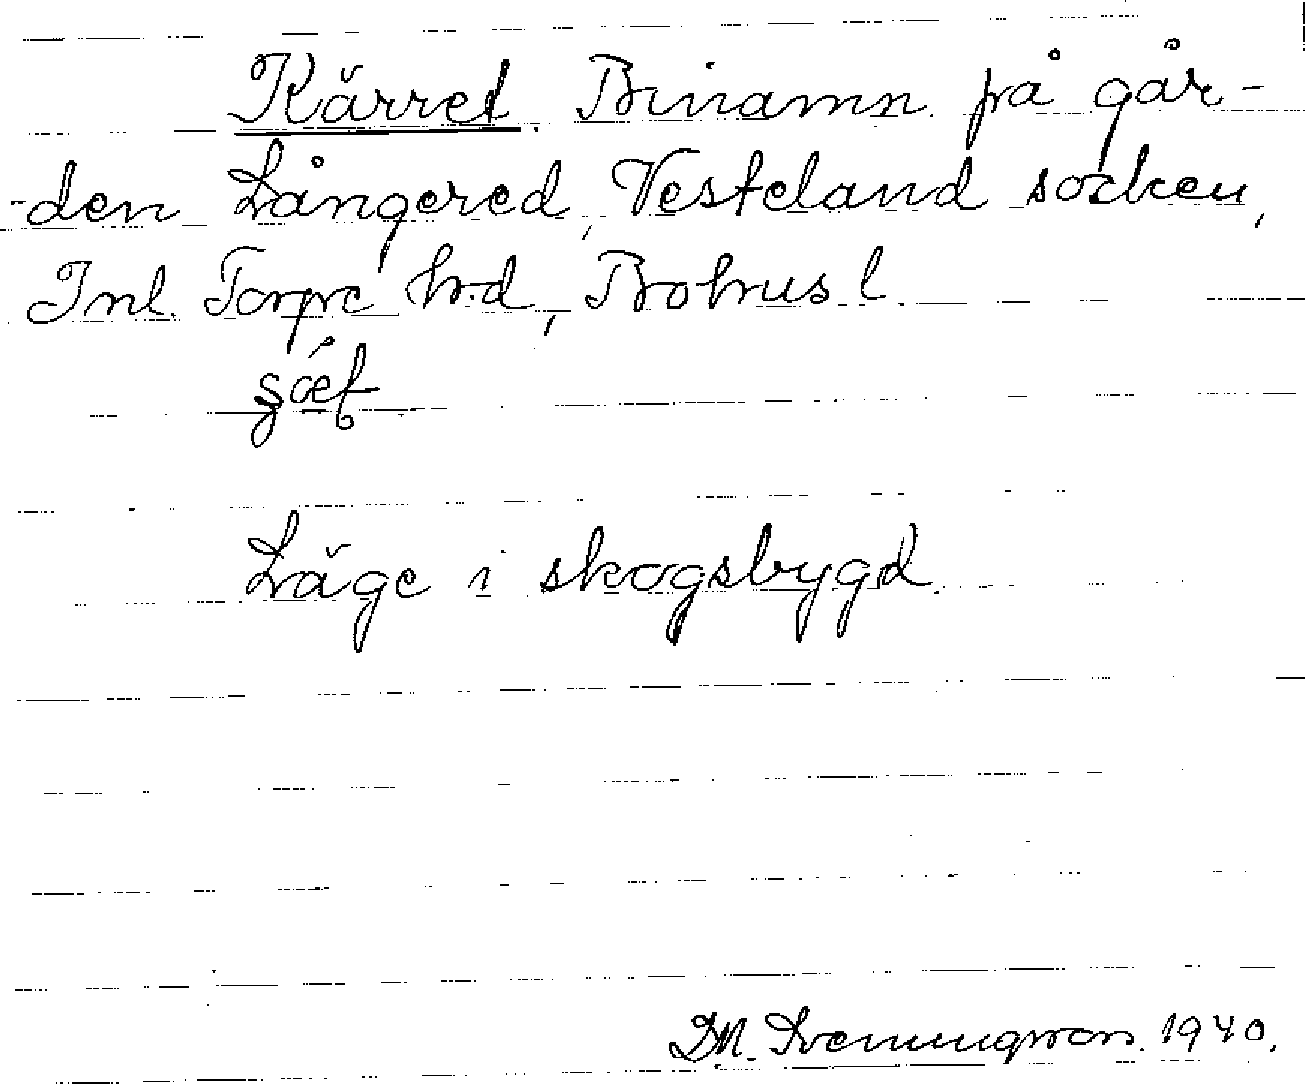 Kärret. Binamn på går-
-den Långered, Vesterland socken,
Inl. Torpe h.d, Bohus l.
Läge i skogsbygd.
1940.